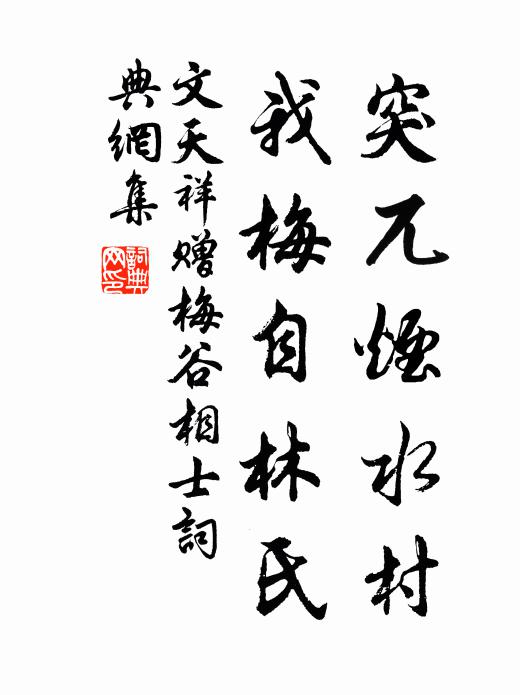 突兀煙水村
我梅自林氏
文天祥贈梅谷相士詞
典網集
詞典網印